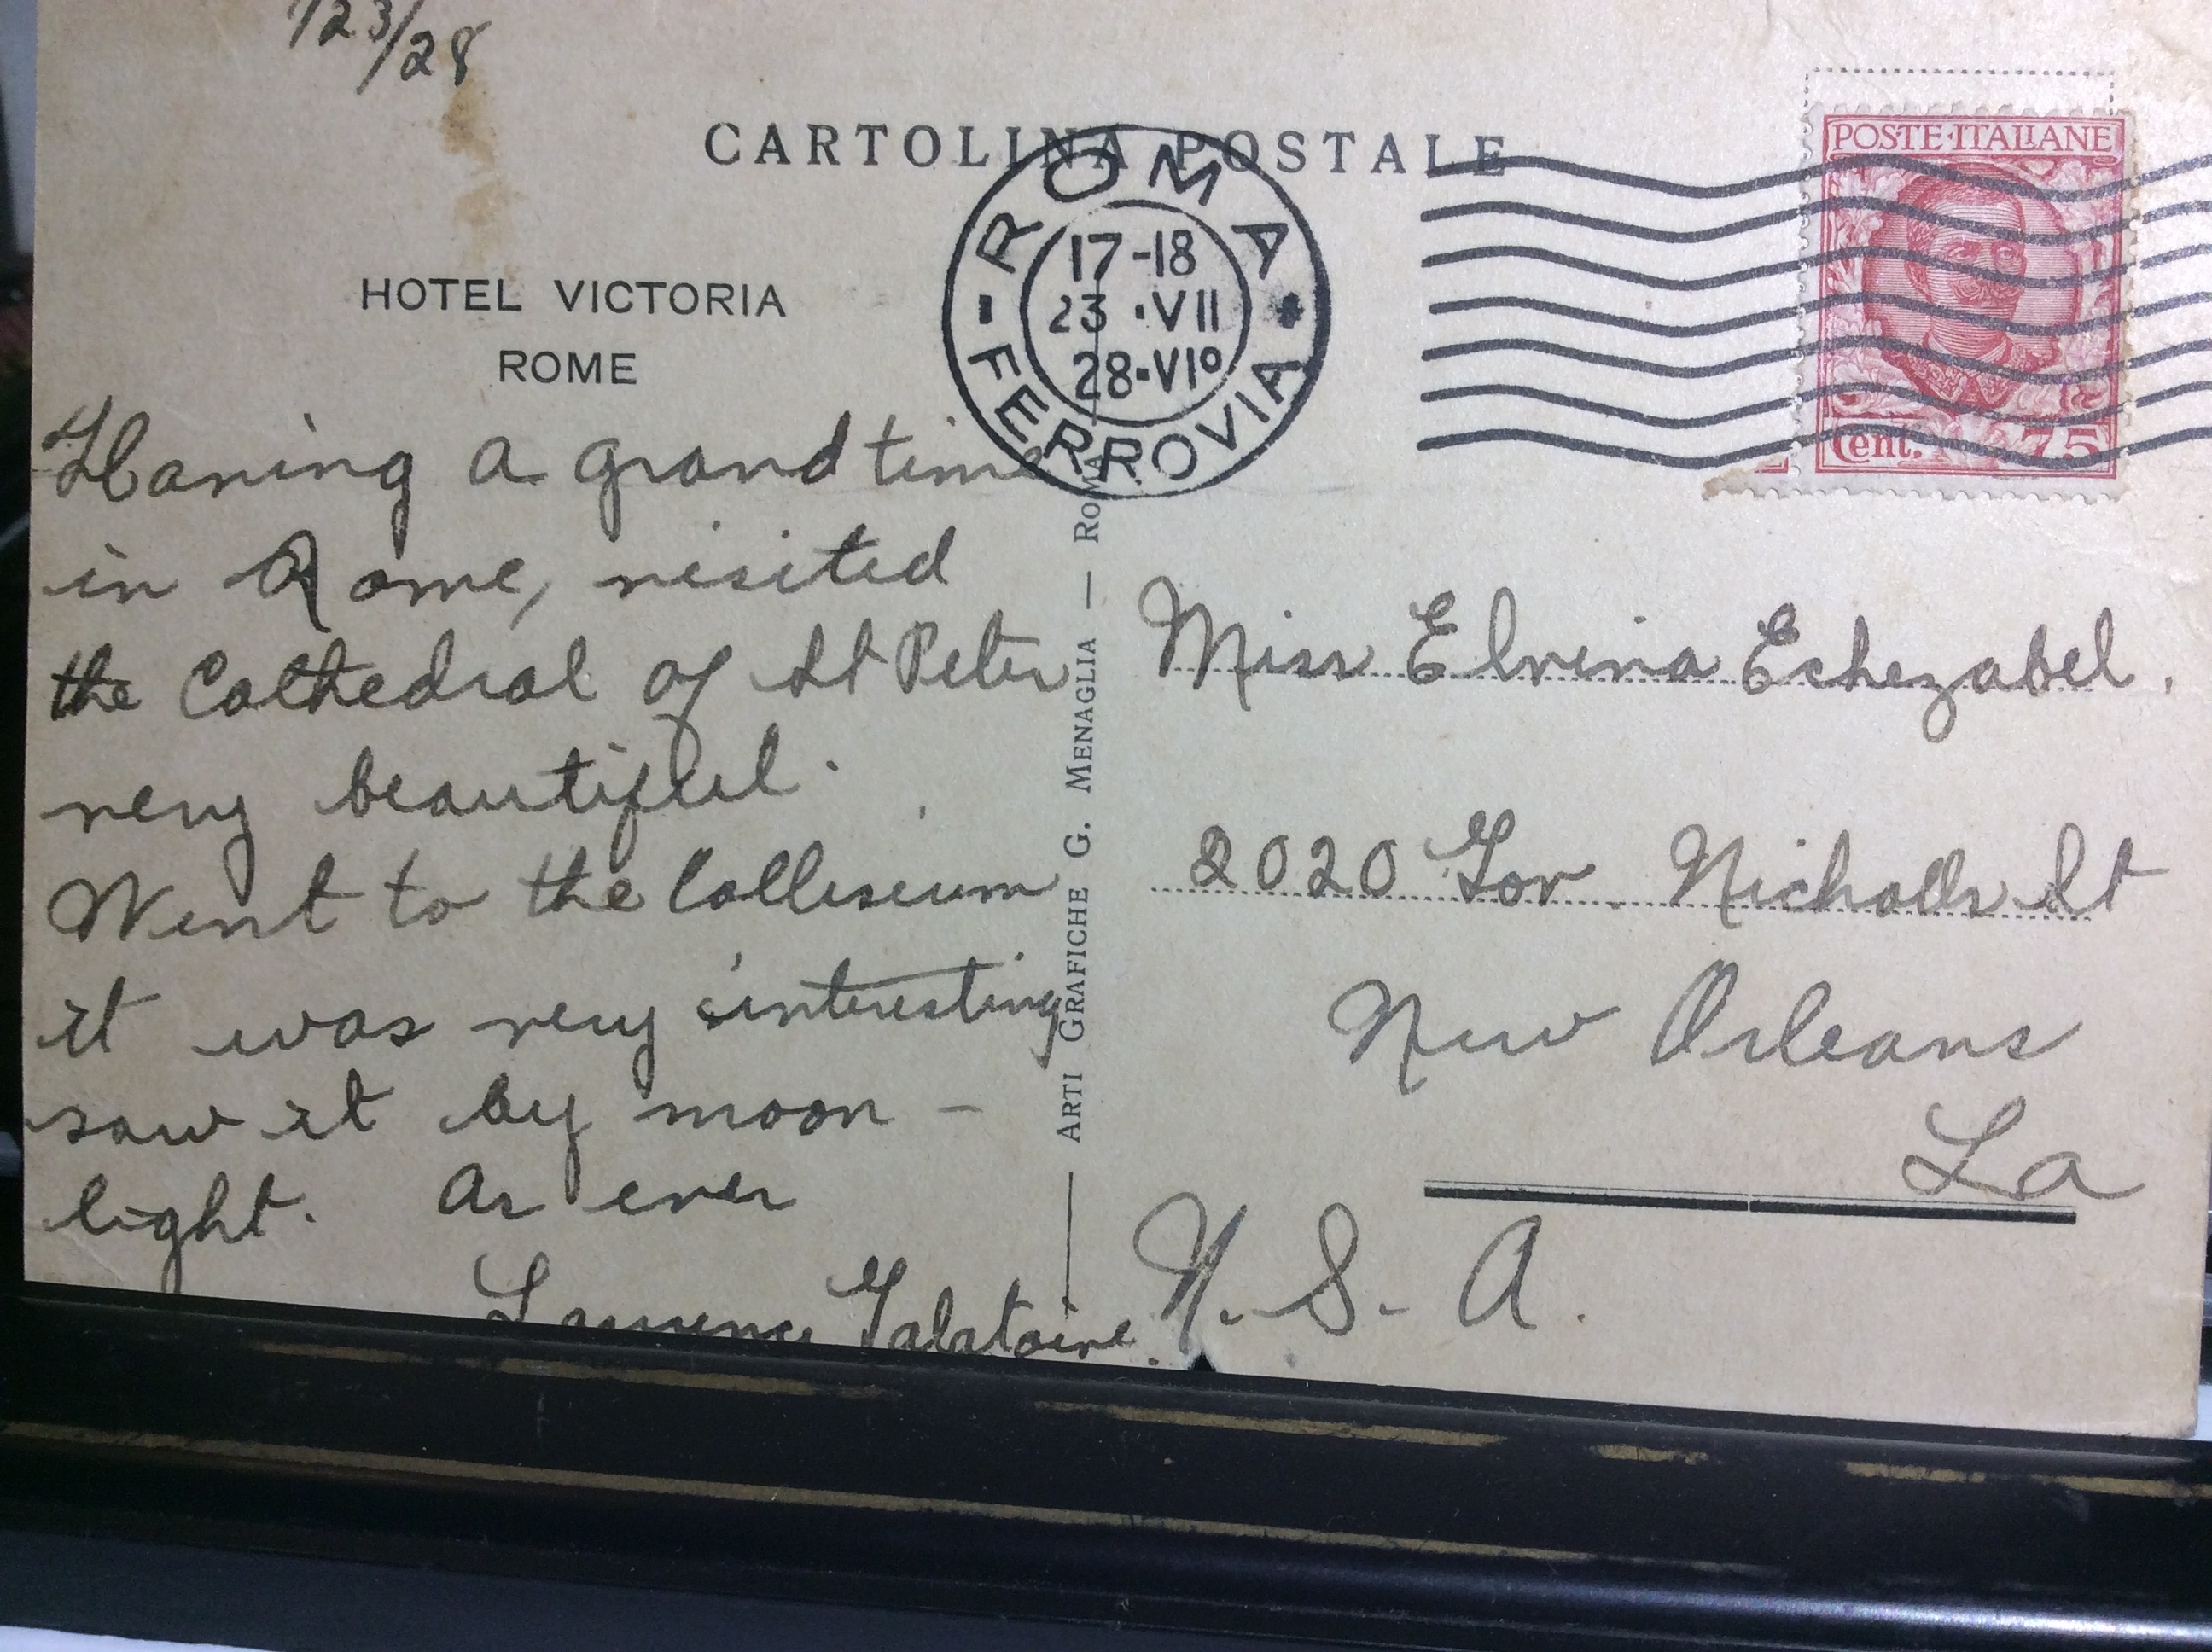 /23/28
CARTOLINA POSTALE
HOTEL VICTORIA
ROME
ROMA
17-18
23 ·VII
28·VIº
FERROVIA
POSTE·ITALIANE
Cent. 75
Having a grand time
in Rome, visited
the Cathedral of St Peter
very beautiful.
Went to the Colliseum
it was very interesting
saw it by moon -
light. As ever
Laurence Galatoire.
ARTI GRAFICHE G. MENAGLIA — ROMA
Miss Elvina Echezabel.
2020 Gov. Nicholls St
New Orleans
La
U.S.A.